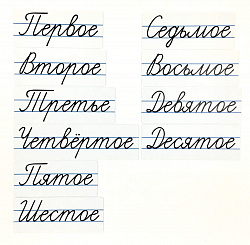 Первое
Второе
Третье
Четвёртое
Пятое
Шестое
Седьмое
Восьмое
Девятое
Десятое